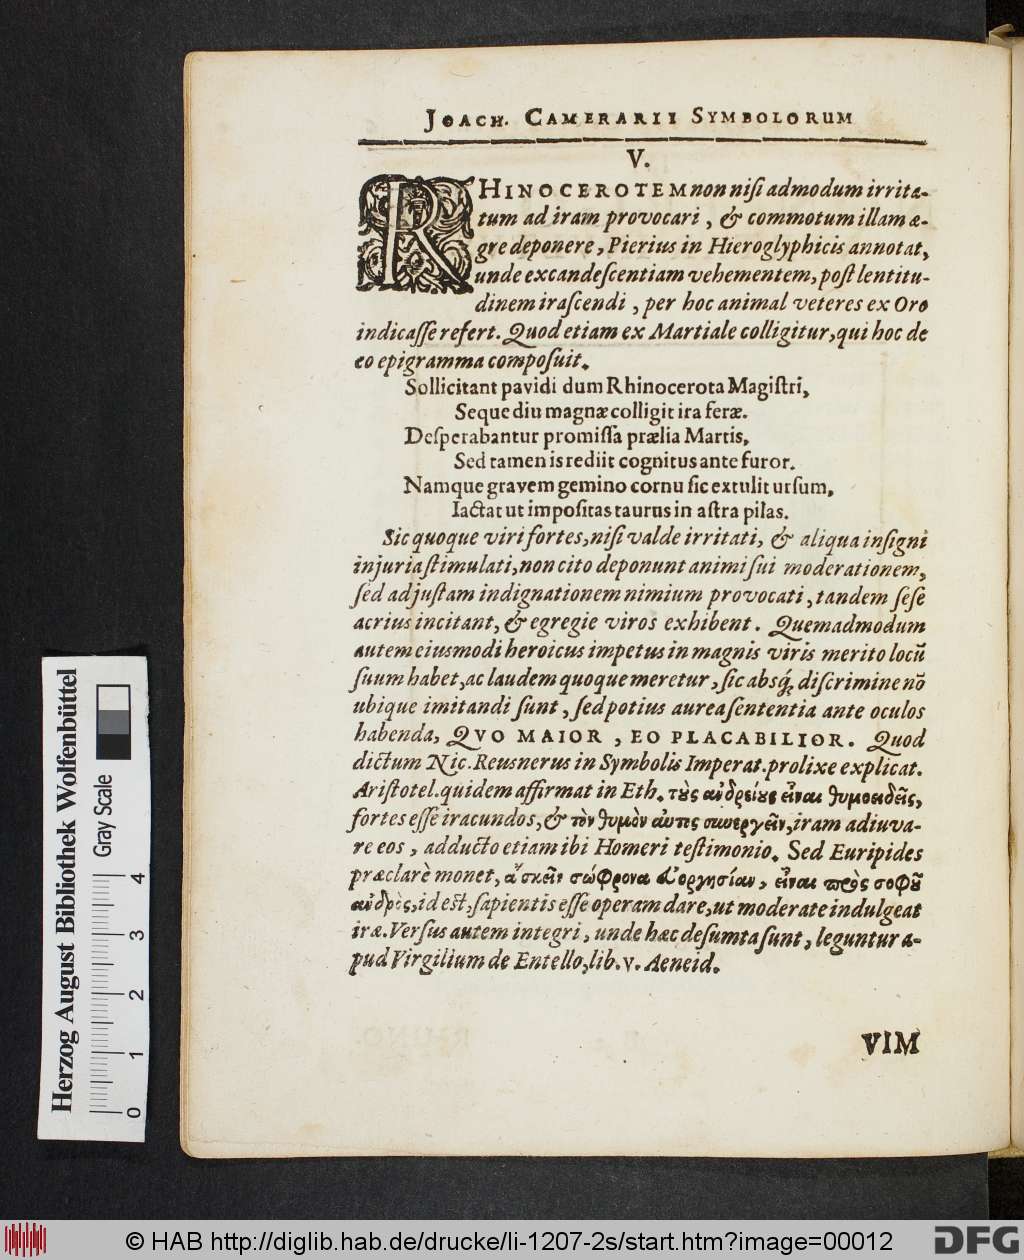 JOACH. CAMERARII SYMBOLORUM
V.
RHINOCEROTEM non nisi admodum irrita-
tum ad iram provocari, & commotum illam æ-
gre deponere, Pierius in Hieroglyphicis annotat,
unde excandescentiam vehementem, post lentitu-
dinem irascendi, per hoc animal veteres ex Oro
indicasse refert. Quod etiam ex Martiale colligitur, qui hoc de
eo epigramma composuit.
Sollicitant pavidi dum Rhinocerota Magistri,
Seque diu magnæ colligit ira feræ.
Desperabantur promissa prælia Martis,
Sed tamen is rediit cognitus ante furor.
Namque gravem gemino cornu sic extulit ursum,
Iactat ut impositas taurus in astra pilas.
Sic quoque viri fortes, nisi valde irritati, & aliqua insigni
injuria stimulati, non cito deponunt animi sui moderationem,
sed ad justam indignationem nimium provocati, tandem sese
acrius incitant, & egregie viros exhibent. Quemadmodum
autem eiusmodi heroicus impetus in magnis viris merito locũ
suum habet, ac laudem quoque meretur, sic absq́; discrimine nõ
ubique imitandi sunt, sed potius aurea sententia ante oculos
habenda, QVO MAIOR, EO PLACABILIOR. Quod
dictum Nic. Reusnerus in Symbolis Imperat. prolixe explicat.
Aristotel. quidem affirmat in Eth. τοὺς ἀνδρείους εἶναι θυμοειδεῖς,
fortes esse iracundos, & τὸν θυμὸν αὐτοῖς συνεργεῖν, iram adiuva-
re eos, adducto etiam ibi Homeri testimonio. Sed Euripides
præclarè monet, ἀσκεῖν σώφρονα εὐοργησίαν, εἶναι πρὸς σοφοῦ
ἀνδρὸς, id est, sapientis esse operam dare, ut moderate indulgeat
iræ. Versus autem integri, unde hæc desumta sunt, leguntur a-
pud Virgilium de Entello, lib. v. Aeneid.
VIM
Herzog August Bibliothek Wolfenbüttel
Gray Scale
0 1 2 3 4
© HAB http://diglib.hab.de/drucke/li-1207-2s/start.htm?image=00012
DFG